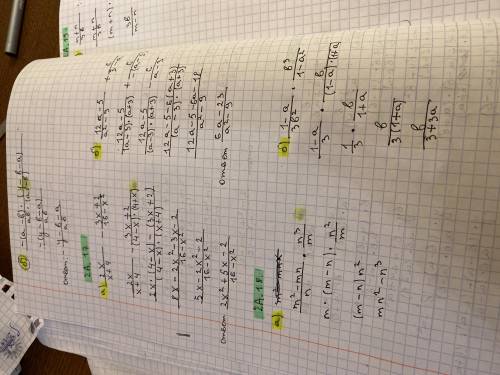 -(y-b-a)/ab
ответ - y-b-a/ab
2А.17.
а) 2x/x+4 - 3x+2/16-x²
2x/x+4 - 3x+2/(4-x)·(4+x)
2x·(4-x)-(3x+2)/(4-x)·(x+4)
8x-2x²-3x-2/16-x²
5x-2x²-2/16-x²
ответ 2x²+6x-2/16-x²
б) 12a-5/a²-9
12a-5/(a-3)·(a+3)
12a-5/(a-3)·(a+3)
12a-5-6(a+3)/(a-3)·(a+3)
12a-5-6a-18/a²-9
ответ 6a-23/a²-9
2А.18.
а) m²-mn/n · n³/m
m·(m-n)·n²/m
(m-n)n²
mn²-n³
б) 1-a/3b² · b³/1-a²
1-a/3 · b/(1-a)·(1+a)
1/3 · b/1+a
b/3(1+a)
b/3+3a
2А.19.